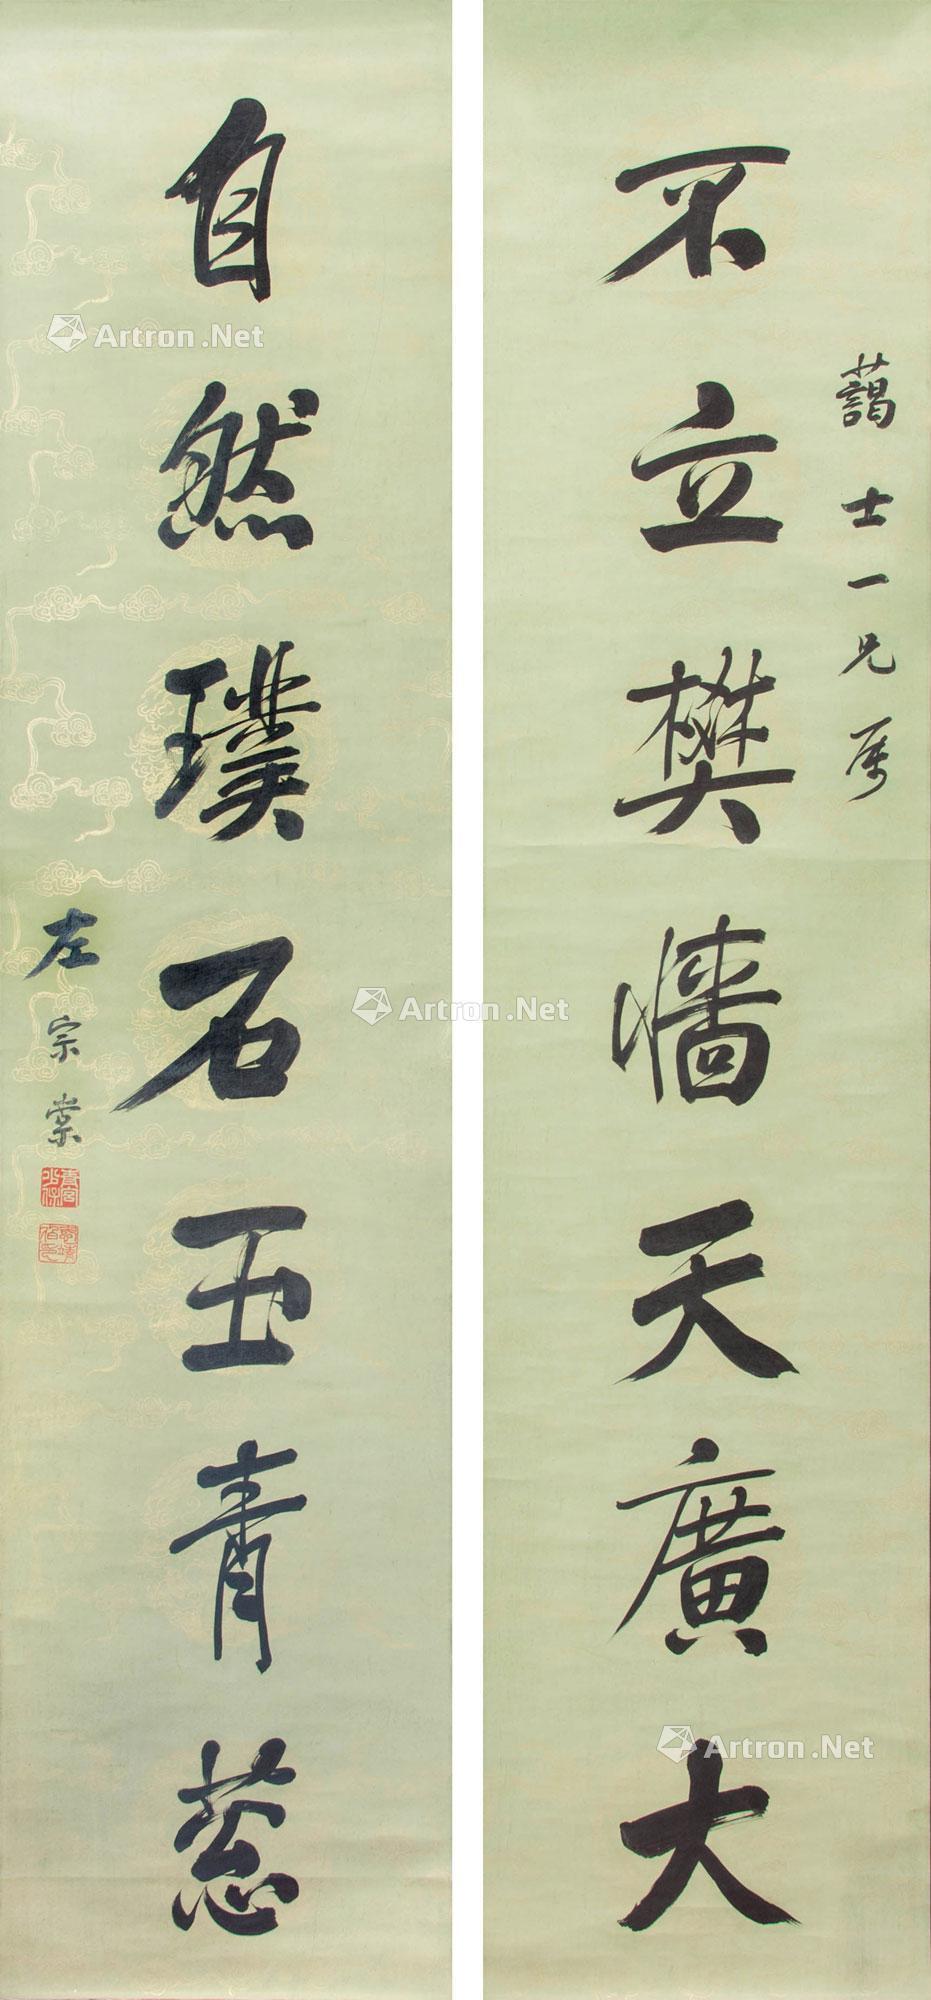 藹士一兄属
不立樊墻天廣大
自然璞石玉青蔥
左宗棠
青宮少保
恪靖伯
Artron.Net
Artron.Net
Artron.Net